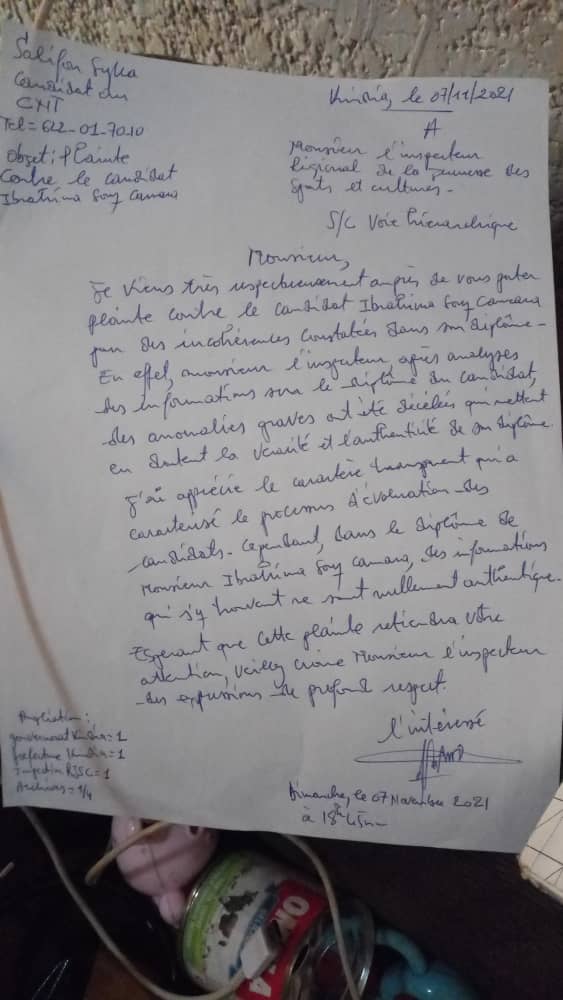 Salifou Sylla
Candidat au
CNT
Tel= 622-01-70-10
Objet: Plainte
Contre le candidat
Ibrahima Sory Camara
Kindia, le 07/11/2021
A
Monsieur l'inspecteur
Régional de la jeunesse des
Sports et cultures.
S/C Voie hiérarchique
Monsieur,
Je viens très respectueusement auprès de vous porter
plainte contre le candidat Ibrahima Sory Camara
pour des incohérences constatées dans son diplôme.
En effet, monsieur l'inspecteur après analyses
des informations sur le diplôme du candidat,
des anomalies graves ont été décélés qui mettent
en doutent la véracité et l'authenticité de son diplôme.
J'ai apprécié le caractère transparent qui a
caractérisé le processus d'évaluation des
candidats. Cependant, dans le diplôme de
Monsieur Ibrahima Sory Camara, des informations
qui s'y trouvent ne sont nullement authentique.
Esperant que cette plainte retiendra votre
attention, veillez croire Monsieur l'inspecteur
des expressions de profond respect.
l'intéressé
Ampliation:
gouvernorat Kindia = 1
prefecture Kindia = 1
Inspection RJSC = 1
Archives = 1/4
Dimanche, le 07 Novembre 2021
à 18h 45mn
OMO